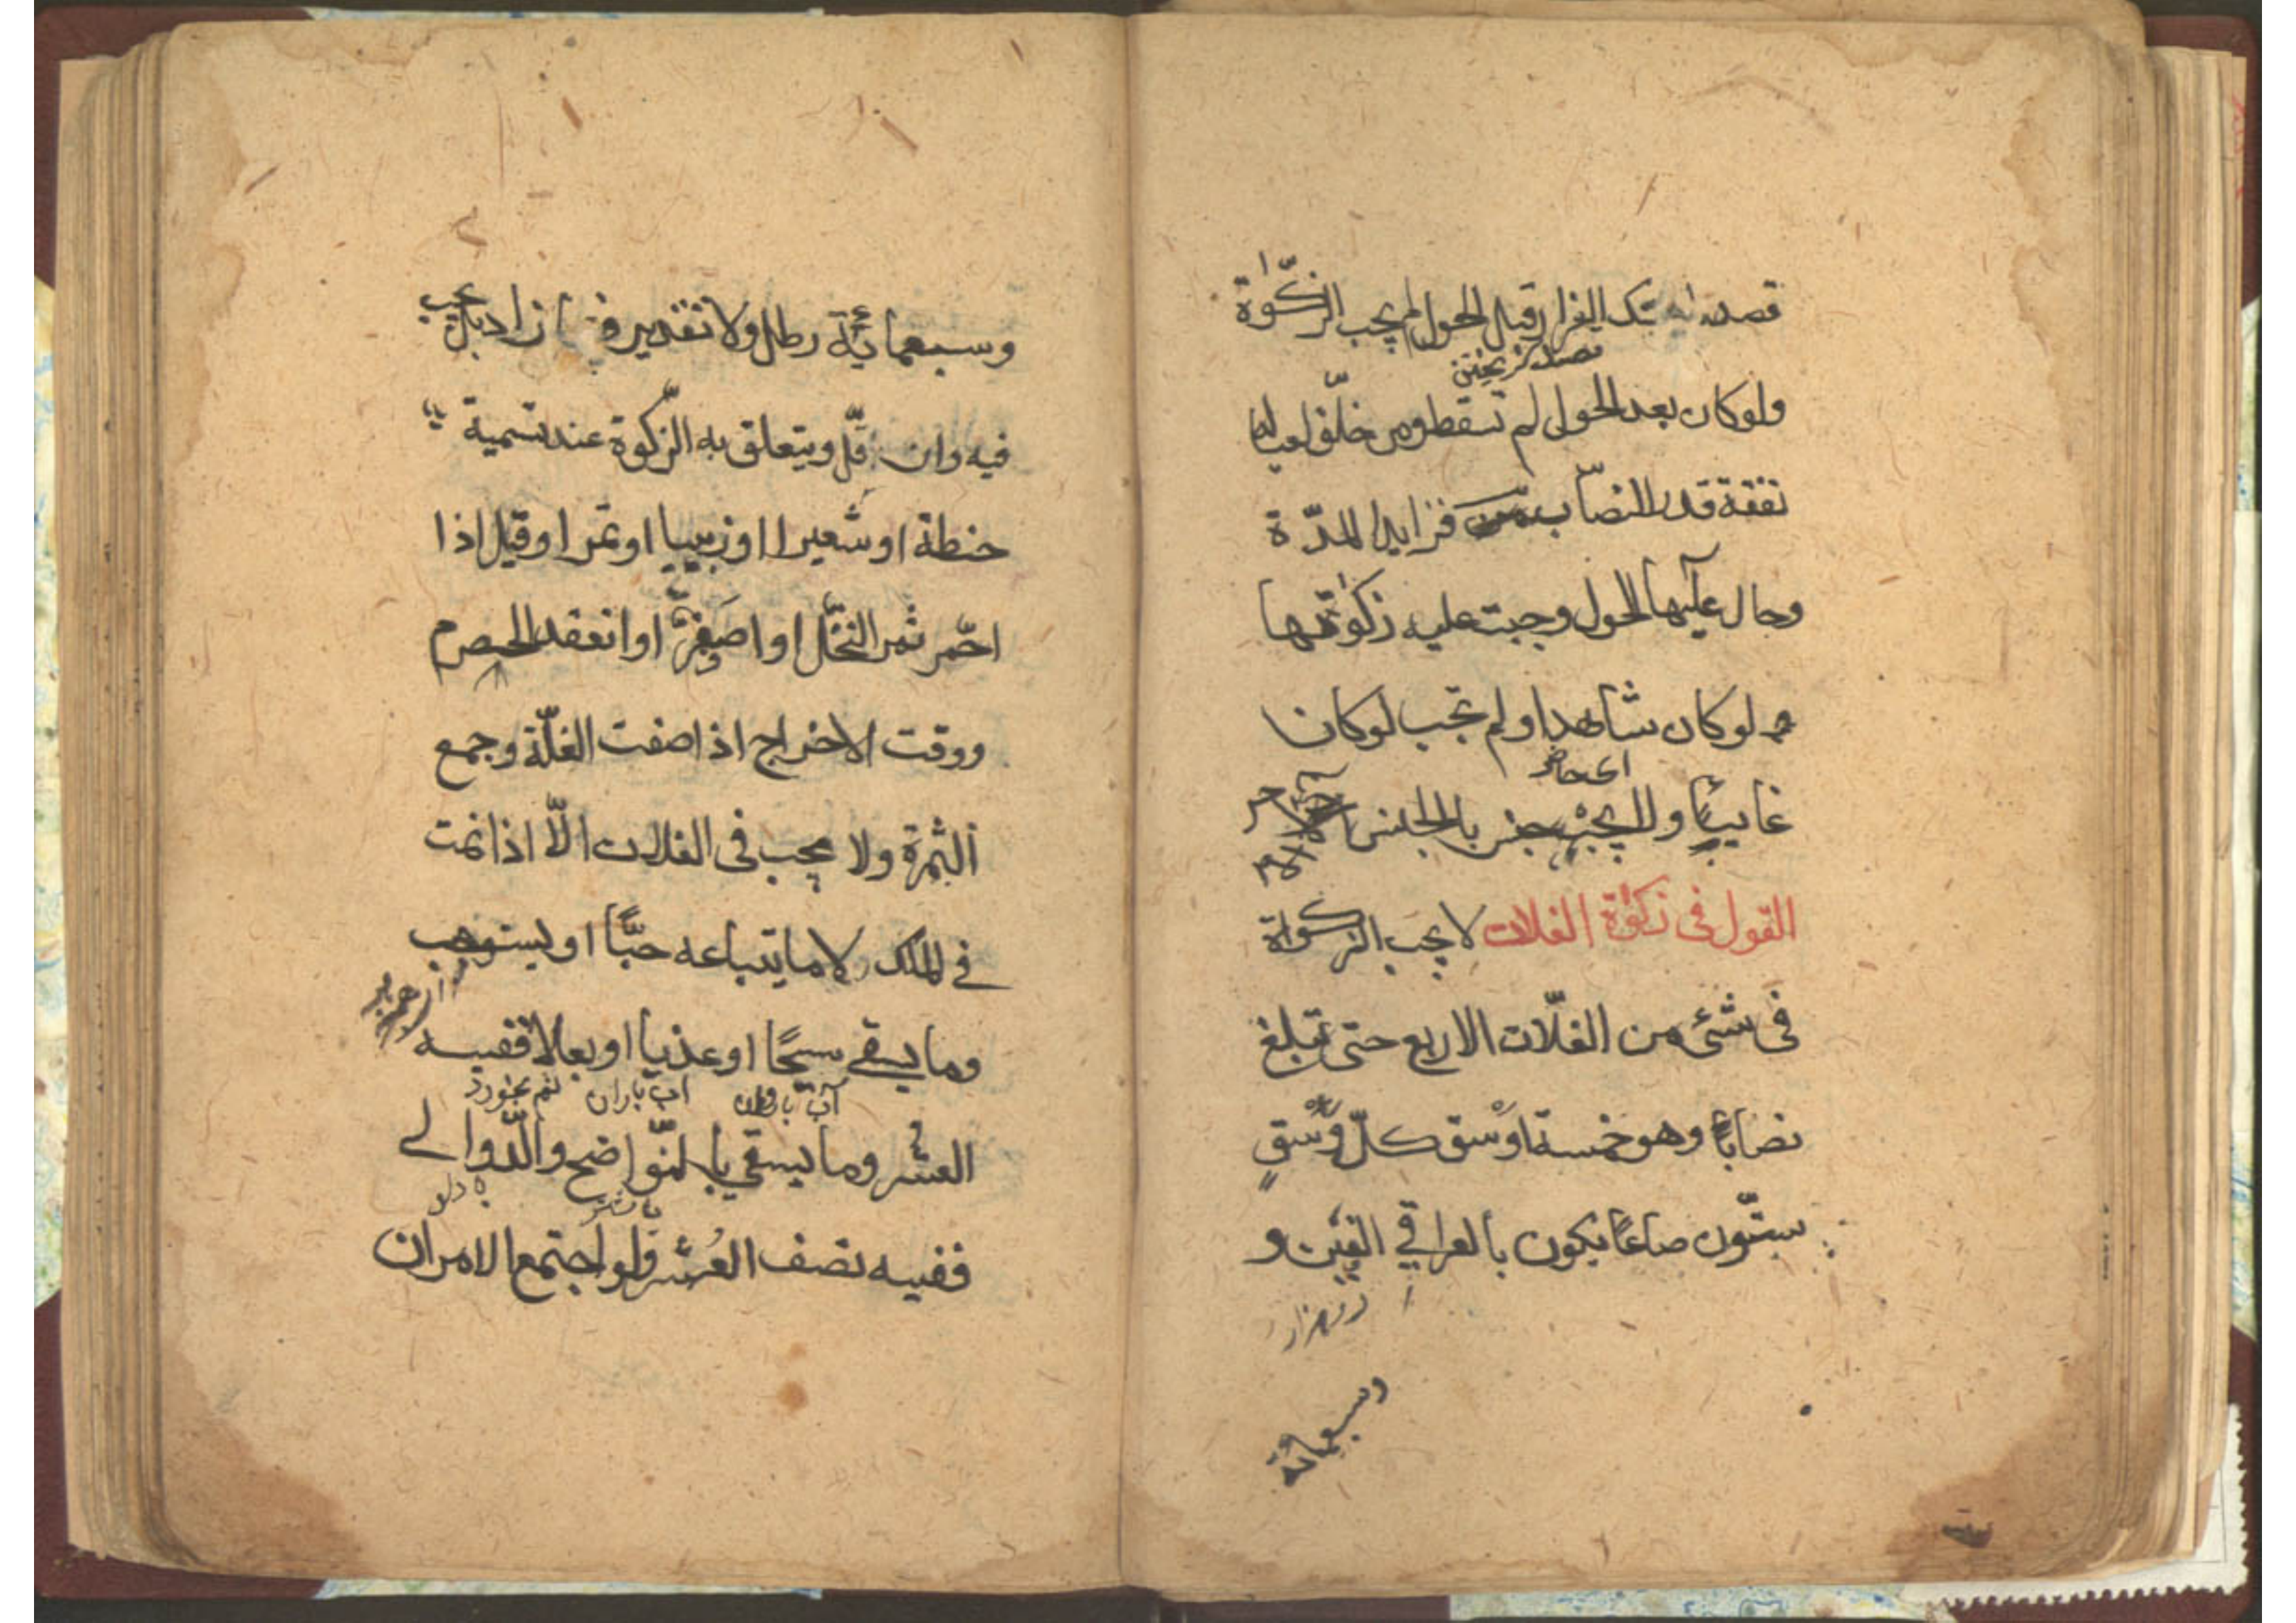 قصده بذلك الفرار قبل الحول لم يجب الزكوة
ولو كان بعد الحول لم تسقط ومن خلّف لعياله
نفقة قدر النصاب فزايدا لمدّة
وحال عليها الحول وجبت عليه زكوتها
لو كان شاهدا ولم تجب لو كان
غايبًا ولا يجبر جنس بالجنس
القول فى زكوة الغلات لا يجب الزكوة
فى شئ من الغلّات الاربع حتى تبلغ
نصابًا وهو خمسة اوسق كلّ وسق
ستّون صاعًا يكون بالعراقي الفين و
دو هزار
وسبعمائة
وسبعمائة رطل ولا تقدير فيما زاد بل يجب
فيه وان قلّ ويتعلق به الزّكوة عند تسمية
حنطة او شعيرا او زبيبا او تمرا وقيل اذا
احمّر ثمر النخل او اصفرّ او انعقد الحصرم
ووقت الاخراج اذا صفت الغلّة وجمع
الثمرة ولا يجب فى الغلات الّا اذا نمت
في الملك لا ما يتباعه حبًّا او يستوهب
وما يسقي سيحًا او عذيا او بعلا ففيه
آب باران
العشر وما يسقي بالنّواضح والدّوالي
ففيه نصف العُشر ولو اجتمع الامران